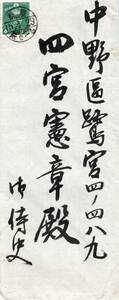 中野區鷺宮四ノ四八九
四宮憲章殿
御侍史